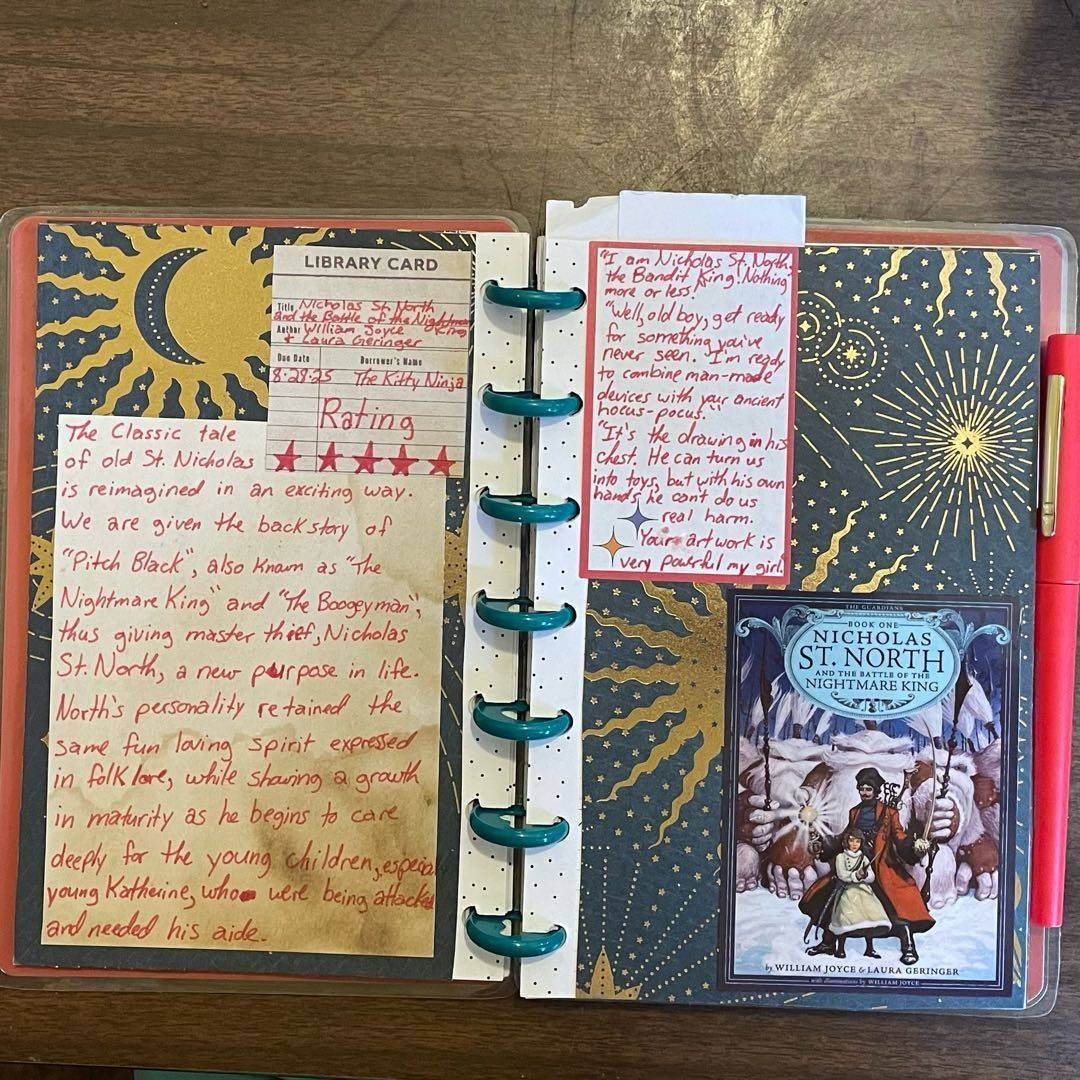 LIBRARY CARD
Title Nicholas St. North
and the Battle of the Nightmare King
Author William Joyce
+ Laura Geringer
Due Date Borrower's Name
8·28·25 The Kitty Ninja
Rating
The Classic tale
of old St. Nicholas
is reimagined in an exciting way.
We are given the backstory of
"Pitch Black", also known as "The
Nightmare King" and "The Boogeyman",
thus giving master thief, Nicholas
St. North, a new purpose in life.
North's personality retained the
same fun loving spirit expressed
in folklore, while showing a growth
in maturity as he begins to care
deeply for the young children,
young Katherine, who were being attacked
and needed his aide.
"I am Nicholas St. North,
the Bandit King! Nothing
more or less."
"Well, old boy, get ready
for something you've
never seen. I'm ready
to combine man-made
devices with your ancient
hocus-pocus."
"It's the drawing in his
chest. He can turn us
into toys, but with his own
hands he can't do us
real harm.
Your artwork is
very powerful my girl.
THE GUARDIANS
BOOK ONE
NICHOLAS
ST. NORTH
AND THE BATTLE OF THE
NIGHTMARE KING
by WILLIAM JOYCE & LAURA GERINGER
with illustrations by WILLIAM JOYCE